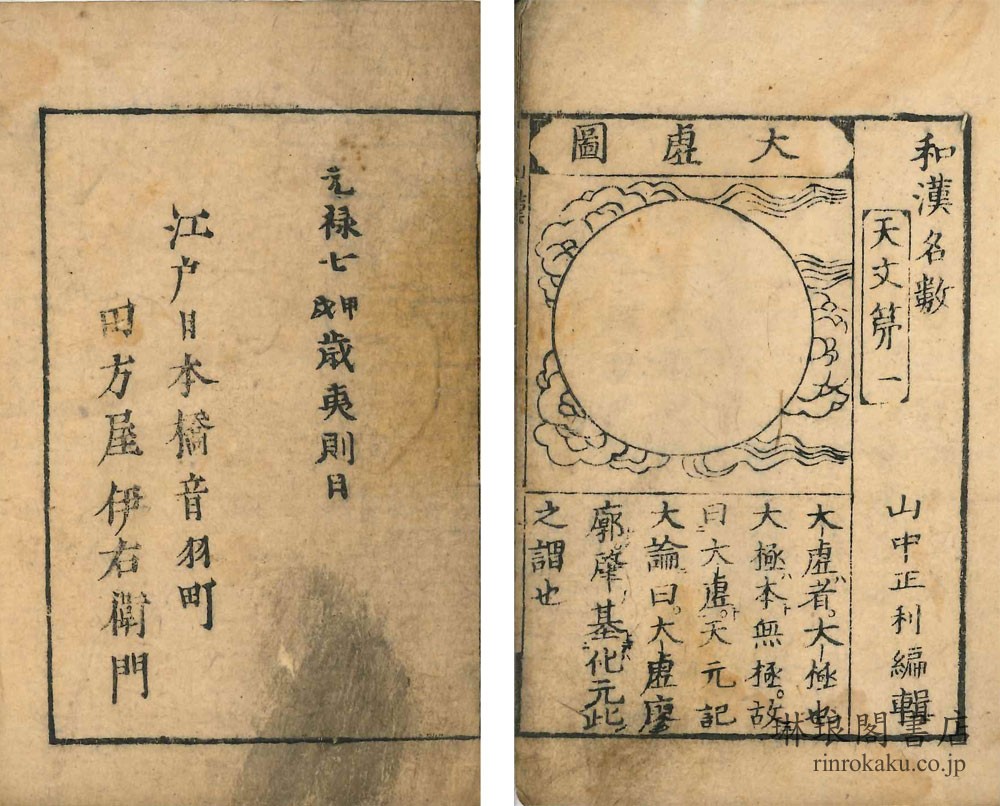 和漢名數
天文第一
山中正利編輯
大虛圖
大虛者。大極也
大極本無極。故
曰大虛。天元記
大論曰。大虛廖
廓肇基化元此
之謂也
元禄七甲戌歳夷則日
江戸日本橋音羽町
田方屋伊右衛門
琳琅閣書店
rinrokaku.co.jp